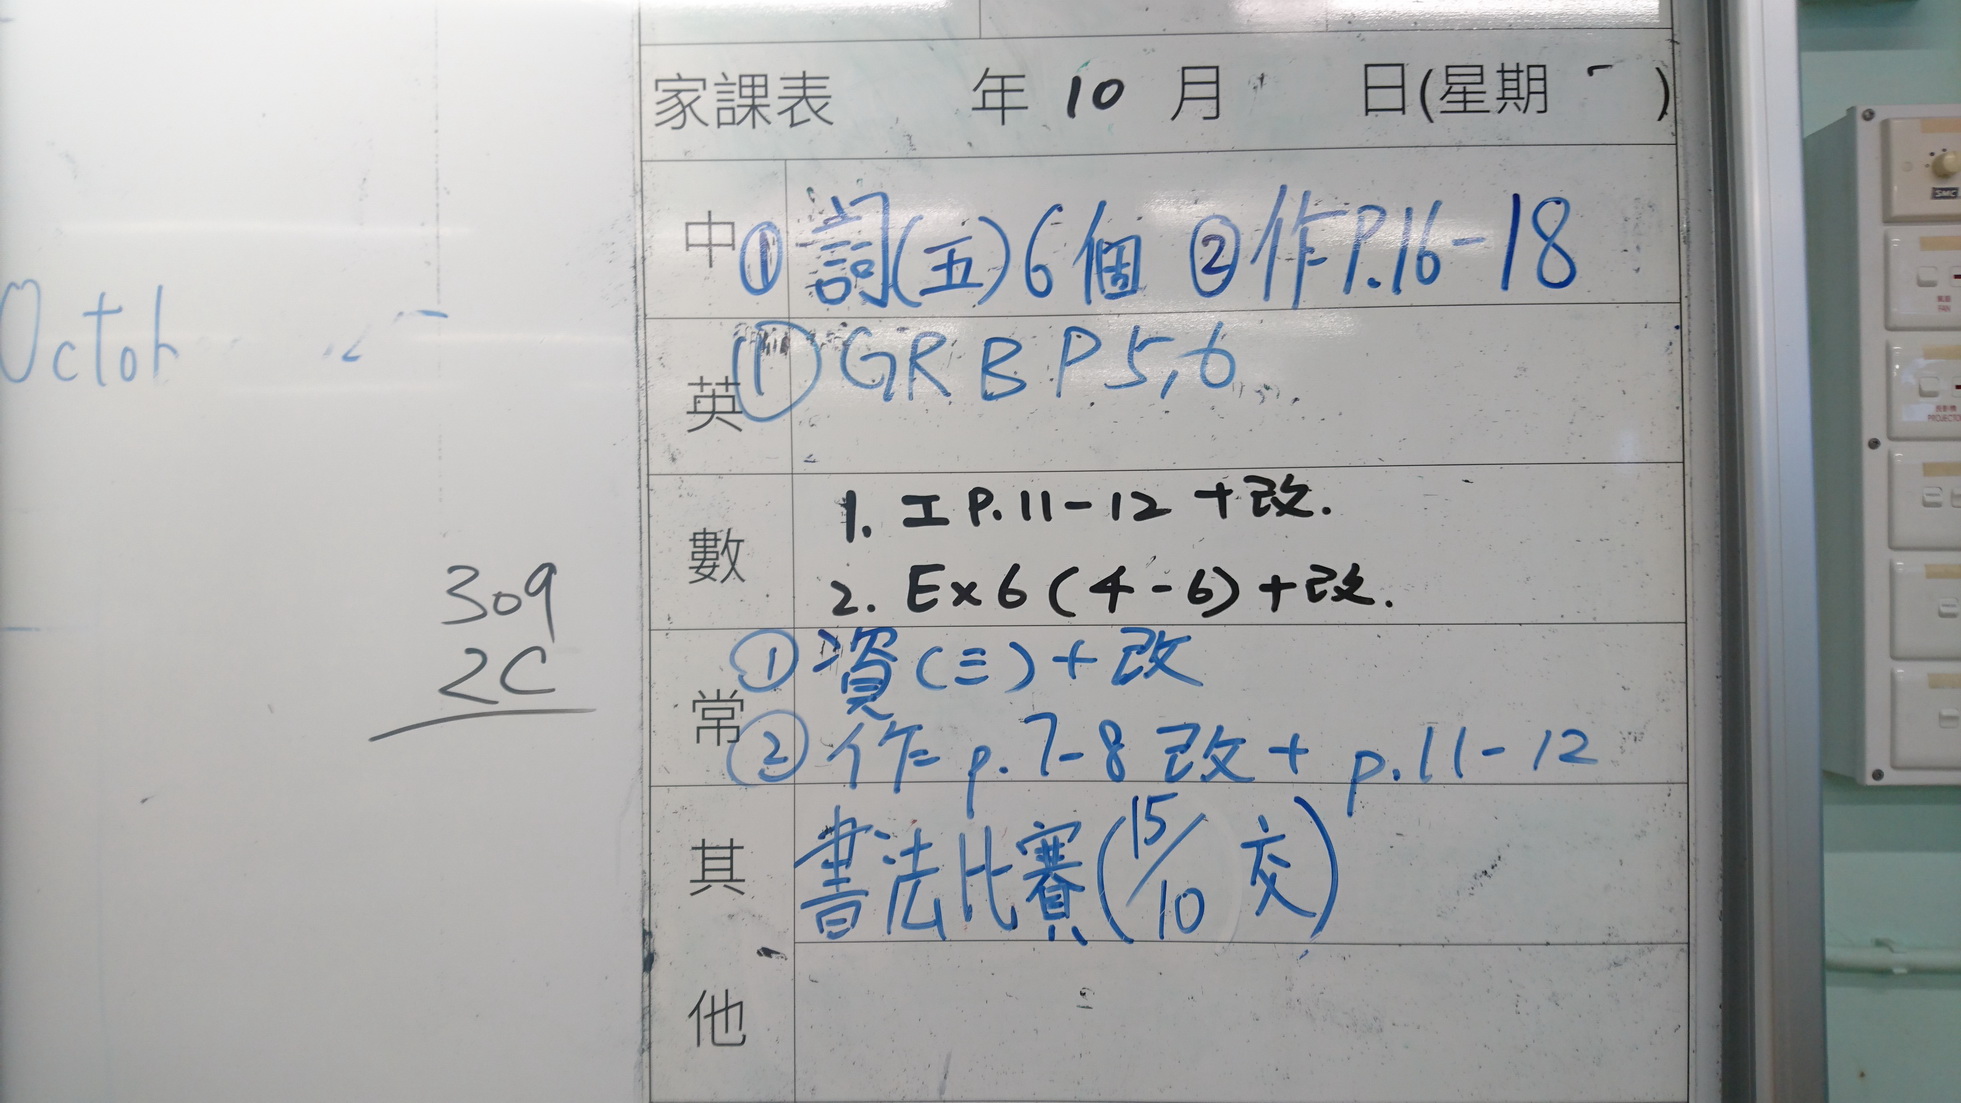 家課表 年 10 月 日(星期 )
中 ① 詞(五)6個 ② 作P.16-18
英 ① GRB P5,6
數 1. 工 P.11-12 +改.
2. Ex 6 (4-6)+改.
常 ① 資(三)+改
② 作 p.7-8 改+ p.11-12
其他 書法比賽(15/10 交)
309
2C
SMC
FAN